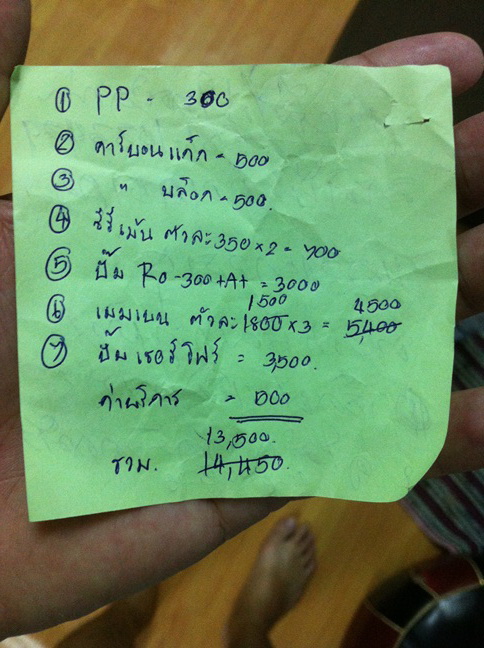 ① PP - 300
② คาร์บอนแท็ก = 500
③ " บล็อก = 500.
④ ซีรี่เม้น ตัวละ 350 x 2 = 700
⑤ ปั๊ม RO-300+A+ = 3000
1500 4500
⑥ เมมเบน ตัวละ 1800 x 3 = 5,400
⑦ ปั๊ม เชอร์โฟร์ = 3,500.
ค่าบริการ = 500
13,500.
รวม. 14,450.